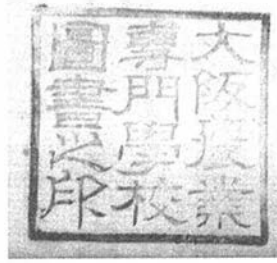 大阪業
專門學校
圖書之印